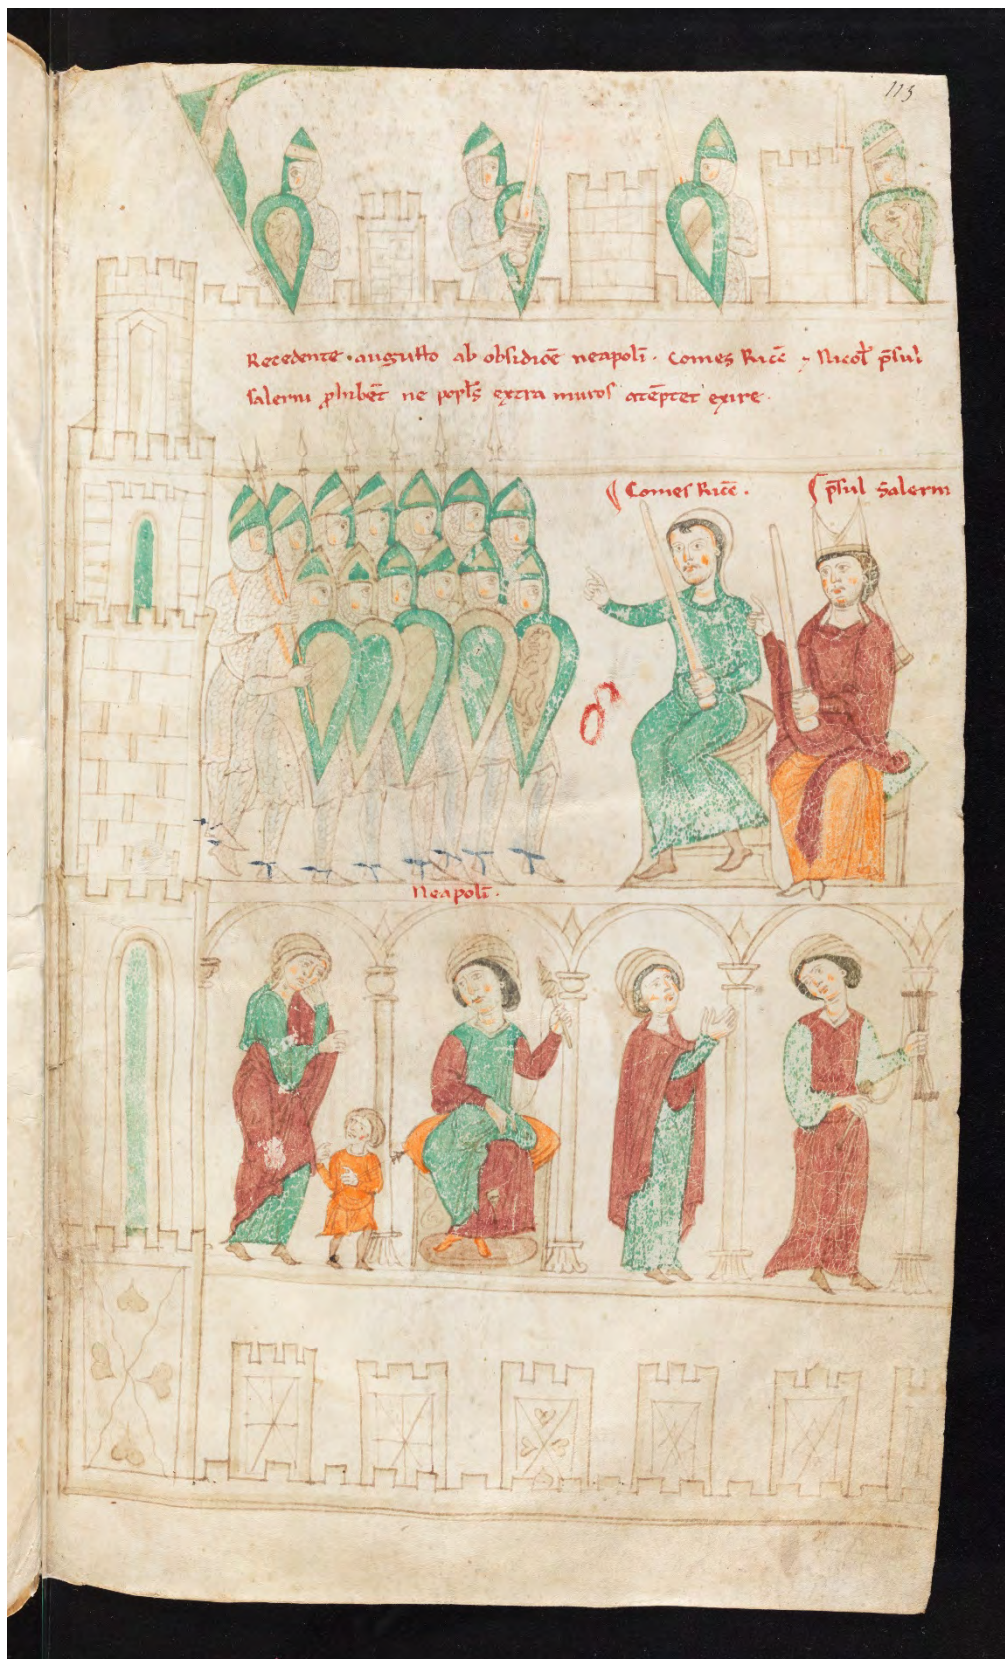 113
Recedente augusto ab obsidiōe neapolī. Comes Ricē ⁊ Nicol̄ p̄sul
salerni ꝓhibēt ne popl̄s extra muros atēptet exire.
Comes Ricē.
p̄sul Salerni
Neapolī.